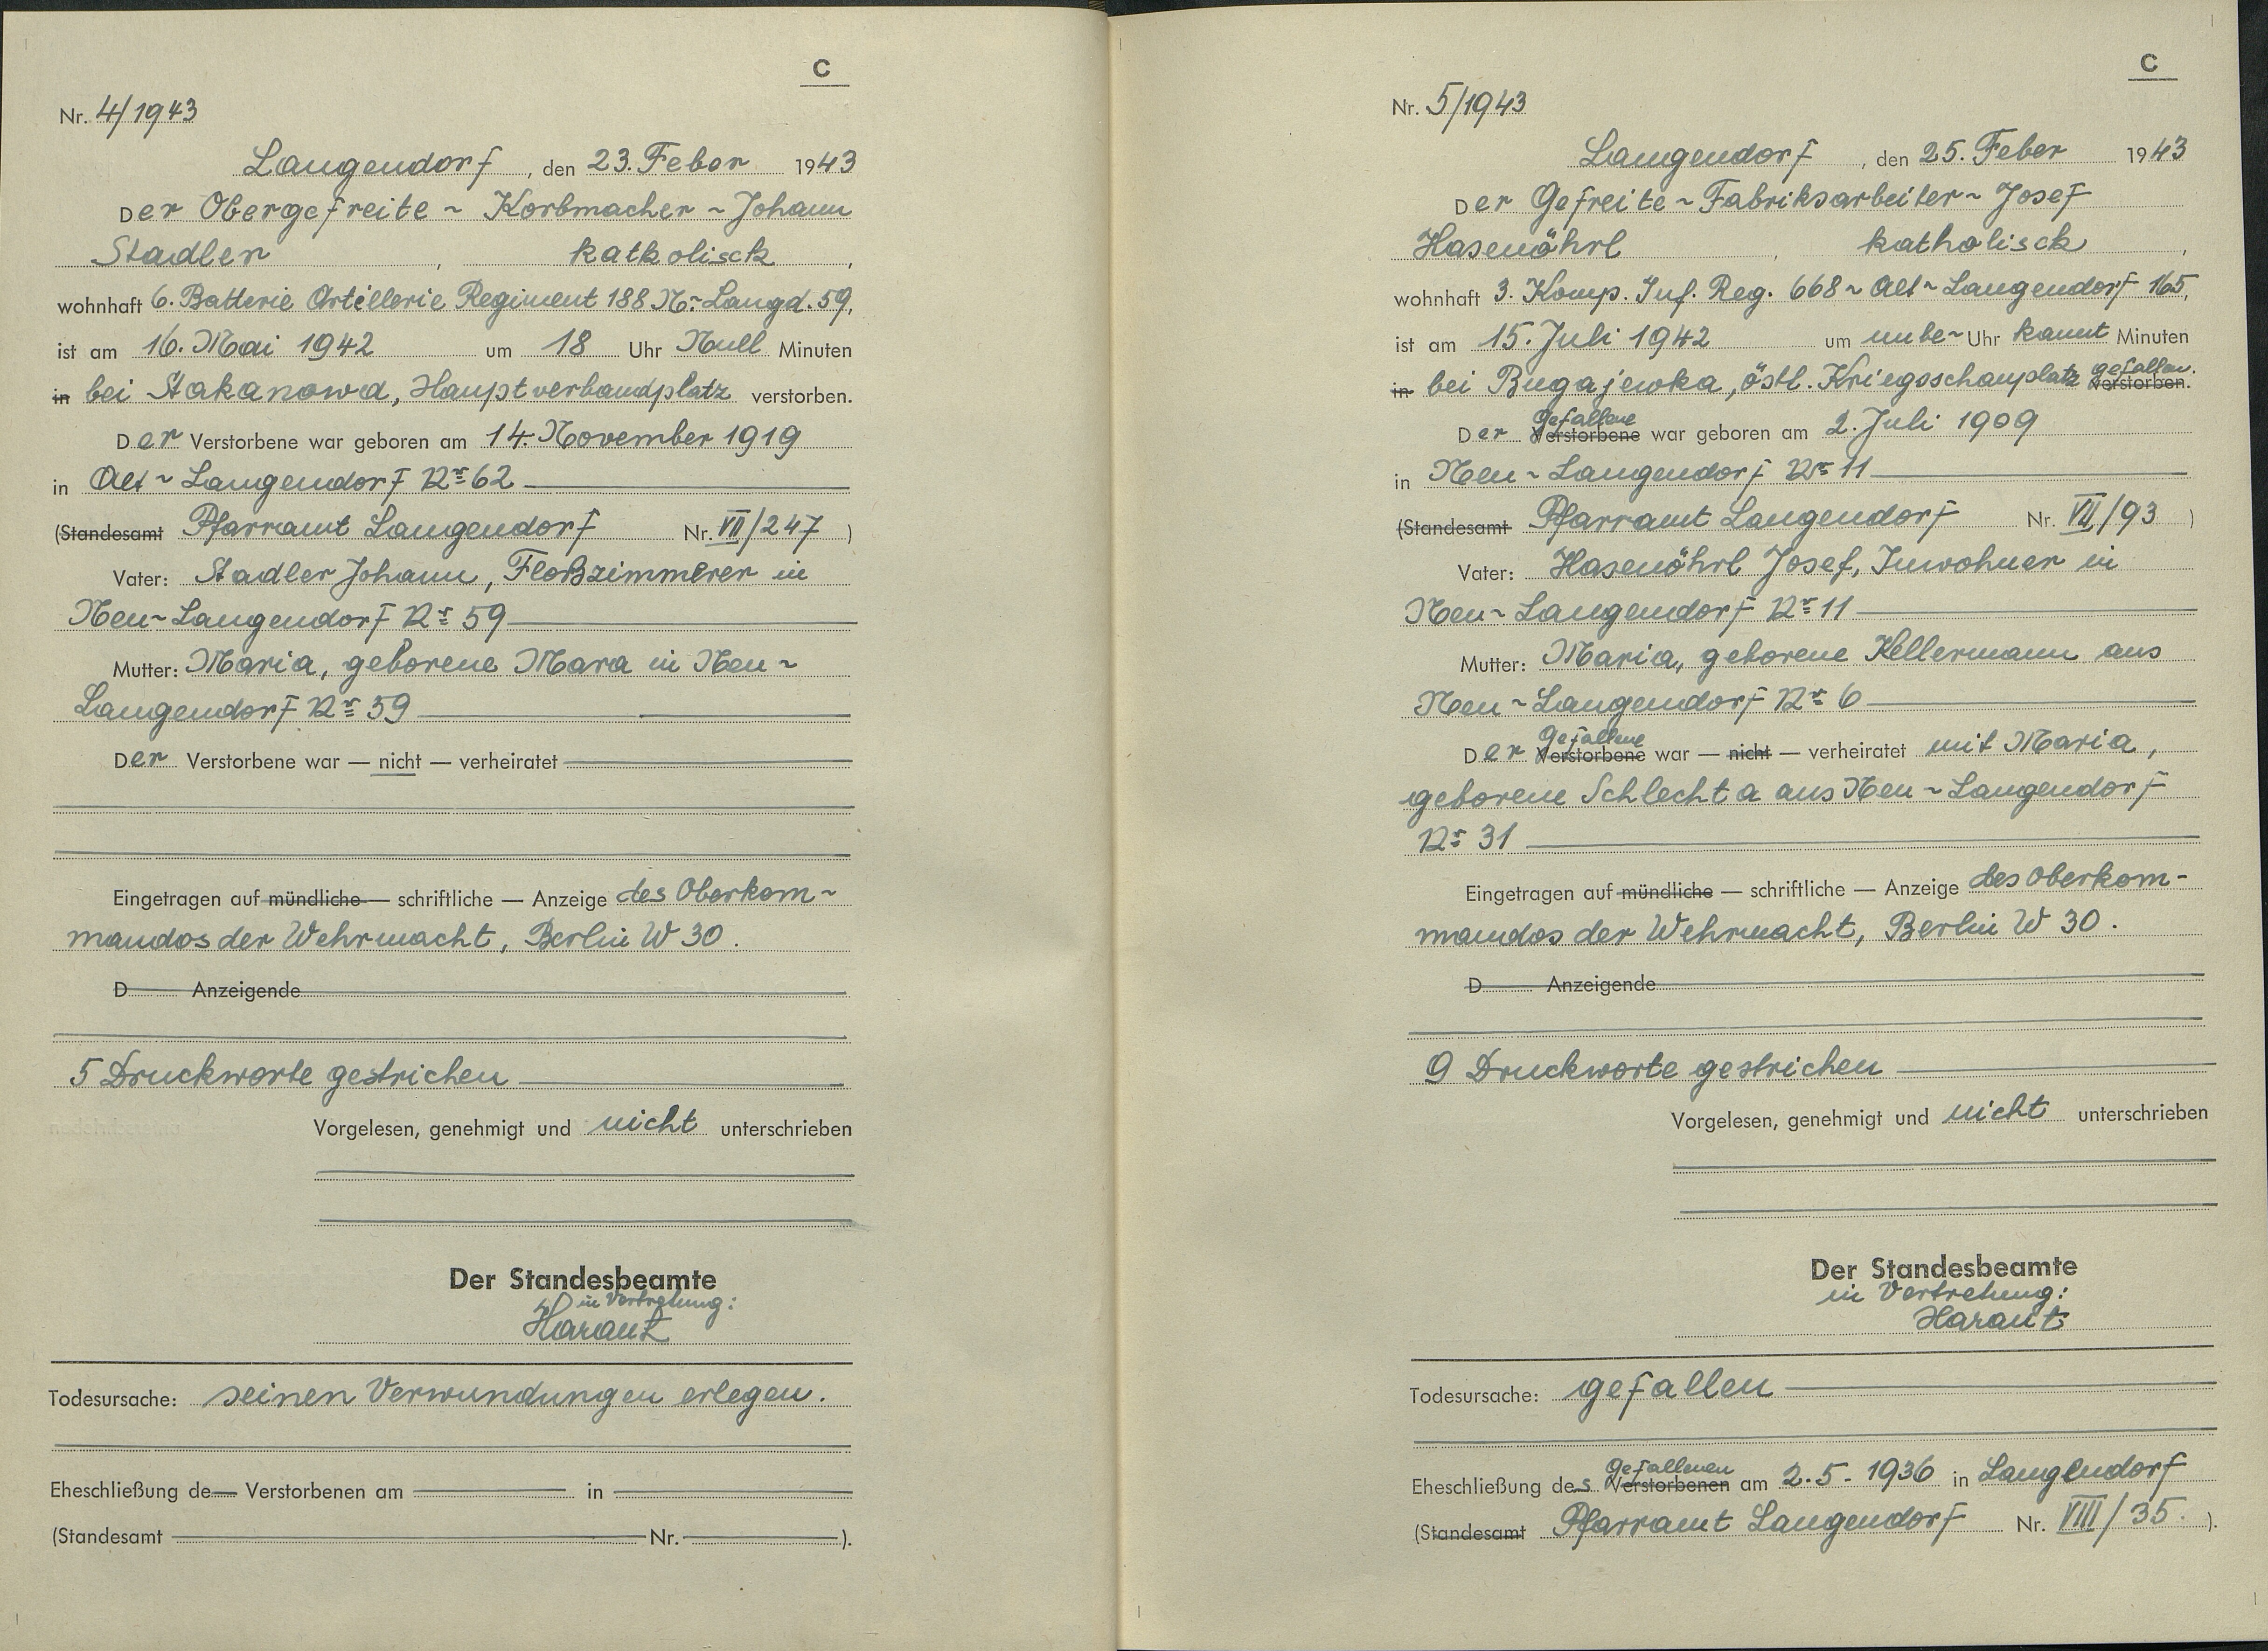 C
Nr. 4/1943
Langendorf, den 23. Feber 1943
Der Obergefreite ~ Korbmacher ~ Johann
Stadler, katholisch,
wohnhaft 6. Batterie Artillerie Regiment 188 N.-Langd. 59,
ist am 16. Mai 1942 um 18 Uhr Null Minuten
in bei Stakanowa, Hauptverbandplatz verstorben.
Der Verstorbene war geboren am 14. November 1919
in Alt ~ Langendorf Nr 62
(Standesamt Pfarramt Langendorf Nr. VII/247)
Vater: Stadler Johann, Floßzimmerer in
Neu ~ Langendorf Nr 59
Mutter: Maria, geborene Mara in Neu ~
Langendorf Nr 59
Der Verstorbene war — nicht — verheiratet
Eingetragen auf mündliche — schriftliche — Anzeige des Oberkom ~
mandos der Wehrmacht, Berlin W 30.
D Anzeigende
5 Druckworte gestrichen
Vorgelesen, genehmigt und nicht unterschrieben
Der Standesbeamte
in Vertretung:
Harant
Todesursache: seinen Verwundungen erlegen.
Eheschließung de Verstorbenen am in
(Standesamt Nr. ).
C
Nr. 5/1943
Langendorf, den 25. Feber 1943
Der Gefreite ~ Fabriksarbeiter ~ Josef
Hasenöhrl, katholisch,
wohnhaft 3. Komp. Inf. Reg. 668 ~ Alt ~ Langendorf 165,
ist am 15. Juli 1942 um unbe ~ Uhr kannt Minuten
in bei Bugajewka, östl. Kriegsschauplatz gefallen. verstorben.
Der Gefallene Verstorbene war geboren am 2. Juli 1909
in Neu ~ Langendorf Nr 11
(Standesamt Pfarramt Langendorf Nr. VII/93)
Vater: Hasenöhrl Josef, Inwohner in
Neu ~ Langendorf Nr 11
Mutter: Maria, geborene Kellermann aus
Neu ~ Langendorf Nr 6
Der Gefallene Verstorbene war — nicht — verheiratet mit Maria,
geborene Schlechta aus Neu ~ Langendorf
Nr 31
Eingetragen auf mündliche — schriftliche — Anzeige des Oberkom-
mandos der Wehrmacht, Berlin W 30.
D Anzeigende
9 Druckworte gestrichen
Vorgelesen, genehmigt und nicht unterschrieben
Der Standesbeamte
in Vertretung:
Harant
Todesursache: gefallen
Eheschließung des Gefallenen Verstorbenen am 2.5.1936 in Langendorf
(Standesamt Pfarramt Langendorf Nr. VIII/35.).